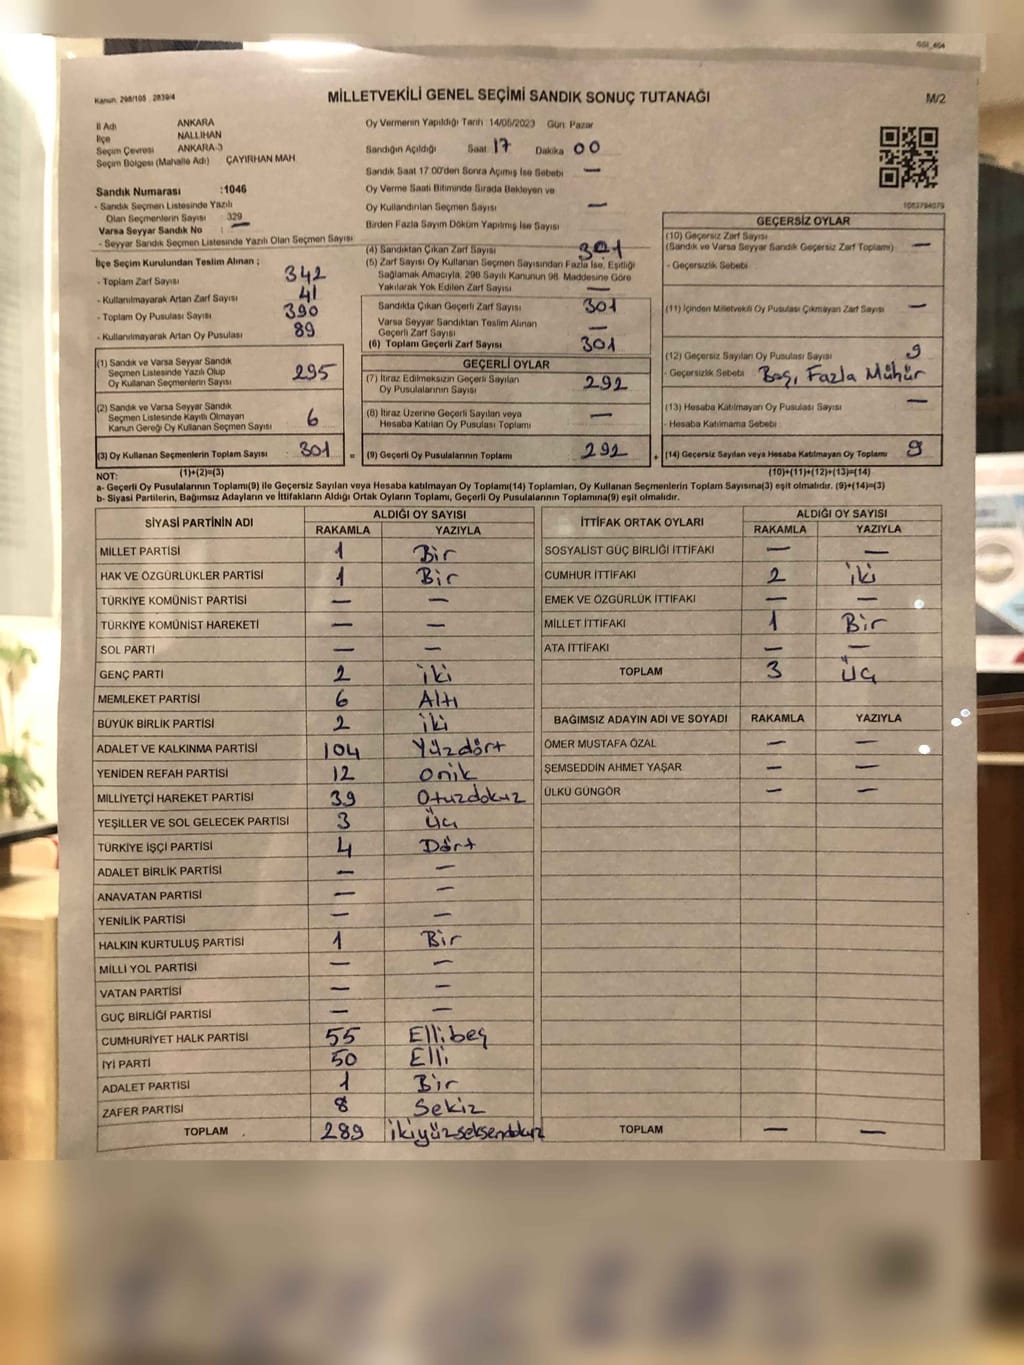 GSI_464
Kanun: 298/105 , 2839/4
MİLLETVEKİLİ GENEL SEÇİMİ SANDIK SONUÇ TUTANAĞI
M/2
İl Adı ANKARA
İlçe NALLIHAN
Seçim Çevresi ANKARA-3
Seçim Bölgesi (Mahalle Adı) ÇAYIRHAN MAH
Oy Vermenin Yapıldığı Tarih 14/05/2023 Gün: Pazar
Sandığın Açıldığı Saat 17 Dakika 00
Sandık Saat 17:00'den Sonra Açılmış İse Sebebi —
Oy Verme Saati Bitiminde Sırada Bekleyen ve
Oy Kullandırılan Seçmen Sayısı —
Birden Fazla Sayım Döküm Yapılmış İse Sayısı
Sandık Numarası :1046
- Sandık Seçmen Listesinde Yazılı
Olan Seçmenlerin Sayısı : 329
Varsa Seyyar Sandık No : —
- Seyyar Sandık Seçmen Listesinde Yazılı Olan Seçmen Sayısı
İlçe Seçim Kurulundan Teslim Alınan ;
- Toplam Zarf Sayısı 342
- Kullanılmayarak Artan Zarf Sayısı 41
- Toplam Oy Pusulası Sayısı 390
- Kullanılmayarak Artan Oy Pusulası 89
(1) Sandık ve Varsa Seyyar Sandık
Seçmen Listesinde Yazılı Olup
Oy Kullanan Seçmenlerin Sayısı 295
(2) Sandık ve Varsa Seyyar Sandık
Seçmen Listesinde Kayıtlı Olmayan
Kanun Gereği Oy Kullanan Seçmen Sayısı 6
(3) Oy Kullanan Seçmenlerin Toplam Sayısı 301
(1)+(2)=(3)
(4) Sandıktan Çıkan Zarf Sayısı 301
(5) Zarf Sayısı Oy Kullanan Seçmen Sayısından Fazla İse, Eşitliği
Sağlamak Amacıyla, 298 Sayılı Kanunun 98. Maddesine Göre
Yakılarak Yok Edilen Zarf Sayısı —
Sandıkta Çıkan Geçerli Zarf Sayısı 301
Varsa Seyyar Sandıktan Teslim Alınan
Geçerli Zarf Sayısı —
(6) Toplam Geçerli Zarf Sayısı 301
GEÇERLİ OYLAR
(7) İtiraz Edilmeksizin Geçerli Sayılan
Oy Pusulalarının Sayısı 292
(8) İtiraz Üzerine Geçerli Sayılan veya
Hesaba Katılan Oy Pusulası Toplamı —
= (9) Geçerli Oy Pusulalarının Toplamı 292 +
GEÇERSİZ OYLAR
(10) Geçersiz Zarf Sayısı
(Sandık ve Varsa Seyyar Sandık Geçersiz Zarf Toplamı) —
- Geçersizlik Sebebi
(11) İçinden Milletvekili Oy Pusulası Çıkmayan Zarf Sayısı —
(12) Geçersiz Sayılan Oy Pusulası Sayısı 9
- Geçersizlik Sebebi Boş, Fazla Mühür
(13) Hesaba Katılmayan Oy Pusulası Sayısı —
- Hesaba Katılmama Sebebi
(14) Geçersiz Sayılan veya Hesaba Katılmayan Oy Toplamı 9
(10)+(11)+(12)+(13)=(14)
NOT:
a- Geçerli Oy Pusulalarının Toplamı(9) ile Geçersiz Sayılan veya Hesaba katılmayan Oy Toplamı(14) Toplamları, Oy Kullanan Seçmenlerin Toplam Sayısına(3) eşit olmalıdır. (9)+(14)=(3)
b- Siyasi Partilerin, Bağımsız Adayların ve İttifakların Aldığı Ortak Oyların Toplamı, Geçerli Oy Pusulalarının Toplamına(9) eşit olmalıdır.
SİYASİ PARTİNİN ADI ALDIĞI OY SAYISI
RAKAMLA YAZIYLA
MİLLET PARTİSİ 1 Bir
HAK VE ÖZGÜRLÜKLER PARTİSİ 1 Bir
TÜRKİYE KOMÜNİST PARTİSİ — —
TÜRKİYE KOMÜNİST HAREKETİ — —
SOL PARTİ — —
GENÇ PARTİ 2 iki
MEMLEKET PARTİSİ 6 Altı
BÜYÜK BİRLİK PARTİSİ 2 iki
ADALET VE KALKINMA PARTİSİ 104 Yüzdört
YENİDEN REFAH PARTİSİ 12 onik
MİLLİYETÇİ HAREKET PARTİSİ 39 Otuzdokuz
YEŞİLLER VE SOL GELECEK PARTİSİ 3 Üç
TÜRKİYE İŞÇİ PARTİSİ 4 Dört
ADALET BİRLİK PARTİSİ — —
ANAVATAN PARTİSİ — —
YENİLİK PARTİSİ — —
HALKIN KURTULUŞ PARTİSİ 1 Bir
MİLLİ YOL PARTİSİ — —
VATAN PARTİSİ — —
GÜÇ BİRLİĞİ PARTİSİ — —
CUMHURİYET HALK PARTİSİ 55 Ellibeş
İYİ PARTİ 50 Elli
ADALET PARTİSİ 1 Bir
ZAFER PARTİSİ 8 Sekiz
TOPLAM 289 ikiyüzseksendokuz
İTTİFAK ORTAK OYLARI ALDIĞI OY SAYISI
RAKAMLA YAZIYLA
SOSYALİST GÜÇ BİRLİĞİ İTTİFAKI — —
CUMHUR İTTİFAKI 2 iki
EMEK VE ÖZGÜRLÜK İTTİFAKI — —
MİLLET İTTİFAKI 1 Bir
ATA İTTİFAKI — —
TOPLAM 3 üç
BAĞIMSIZ ADAYIN ADI VE SOYADI RAKAMLA YAZIYLA
ÖMER MUSTAFA ÖZAL — —
ŞEMSEDDİN AHMET YAŞAR — —
ÜLKÜ GÜNGÖR — —
TOPLAM — —